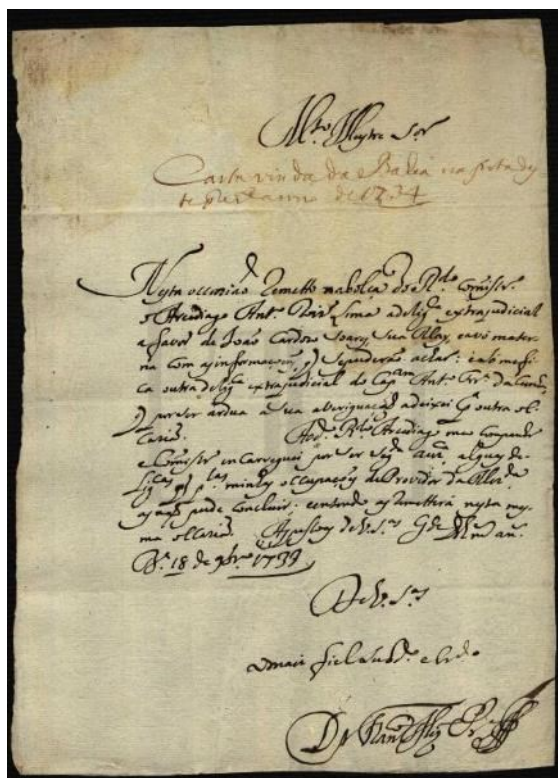 M.to Illustre Sor
Carta vinda da Bahia na frota des
te prez.e anno de 1734
Nesta occazião Remetto na bolça do R.do Comissr.o
o Arcediago Ant.o Roiz Lima a delig.a extrajudicial
a favor de João Cardozo Soares, Sua e avó mater-
na com as informações, q Se puderão achar: e ahi me fi-
ca outra delig.a extrajudicial do Cap.am Ant.o Frr.a da
q por ser ardua a sua aberiguação a deixei p.a outra oc-
cazião. R.do Arcediago meu companhr.o
e Comissr.o encarreguei por ser alguas de-
lig.cas q p.las minhas occupações de Provedor da
as não pude concluir; e entendo as Remetterá nesta mes-
ma occazião. As pessoas de V. S.as G.de D.s m.s an.s
B.a 18 de 9br.o 1739
De V. S.as
O mais fiel e Cr.do